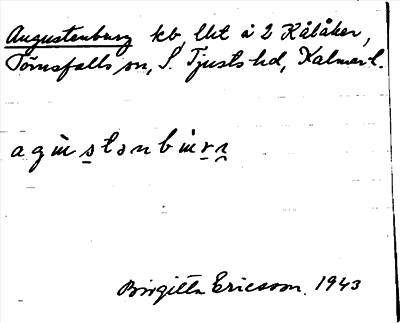 Augustenburg kb, lht å 2 Kålåker,
Törnsfalls sn, S. Tjusts hd, Kalmar l.
agùstənbùrı
Birgitta Ericsson. 1943